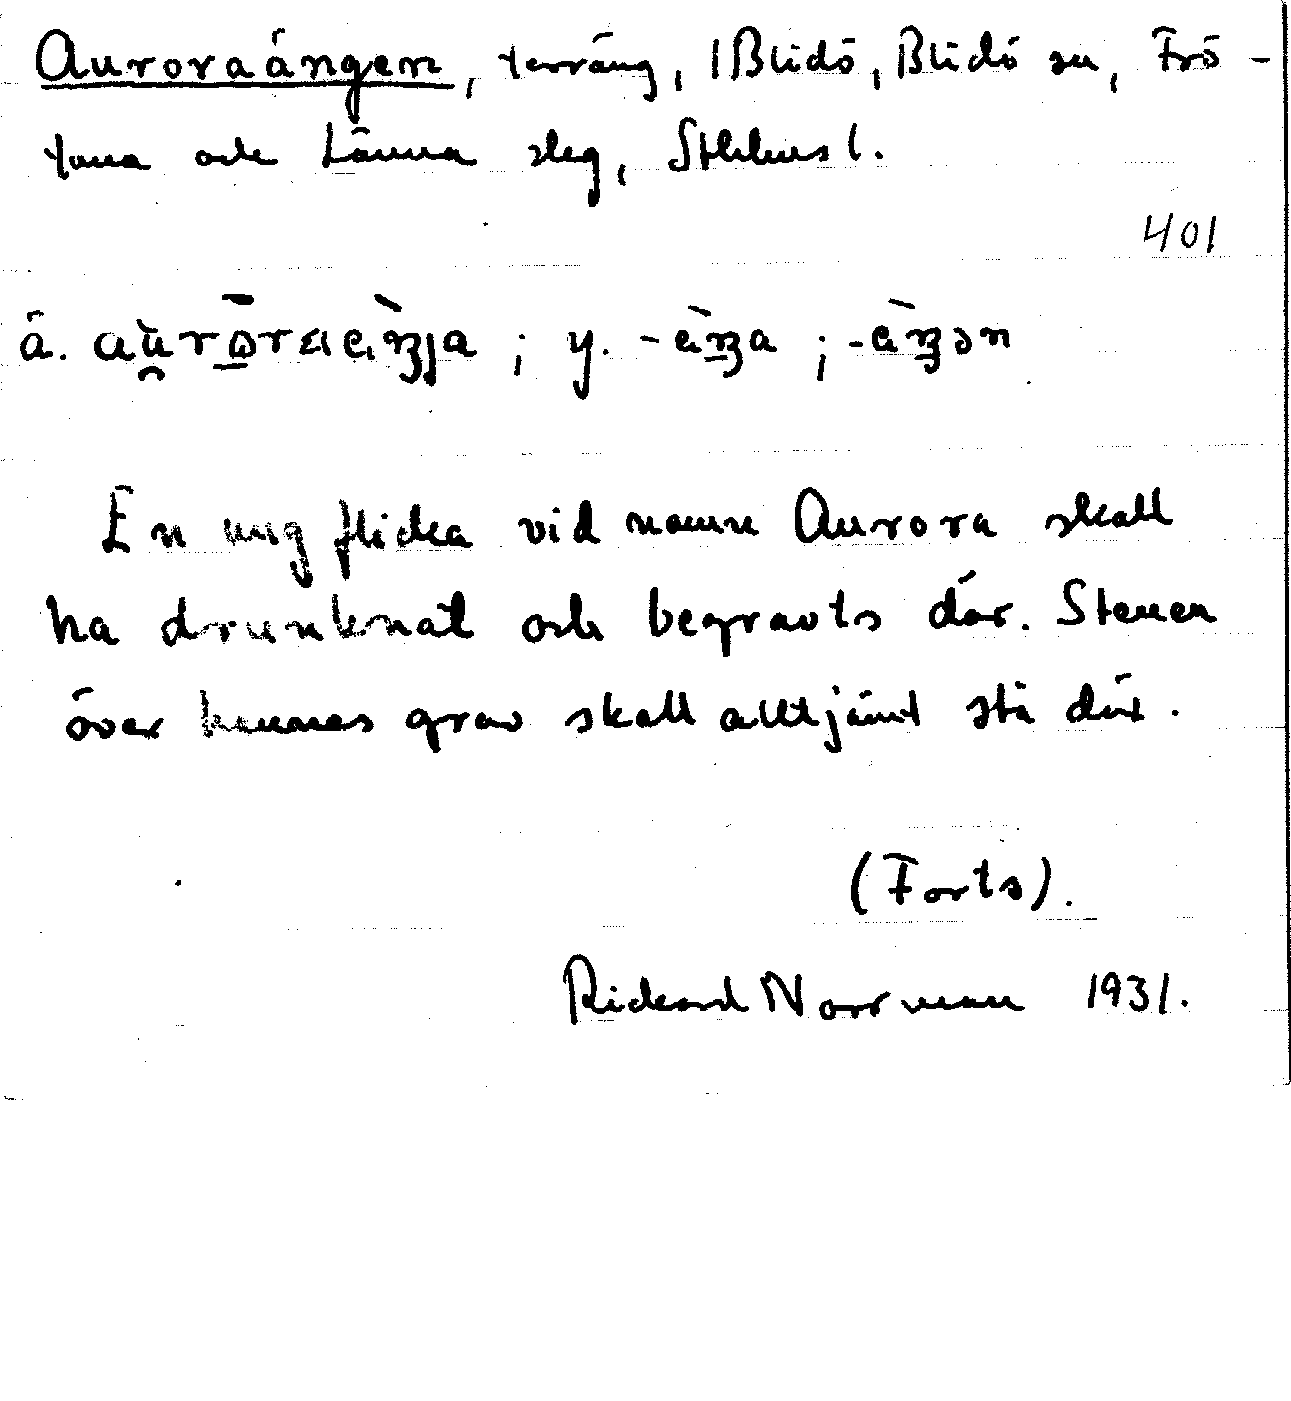 Auroraängen, terräng, Blidö, Blidö sn, Frö-
tuna och Länna skg, Sthlms l.
401
ä.
; y.
;
En ung flicka vid namn Aurora skall
ha drunknat och begravts där. Stenen
över hennes grav skall alltjämt stå där.
(Forts).
Rickard Norrman 1931.